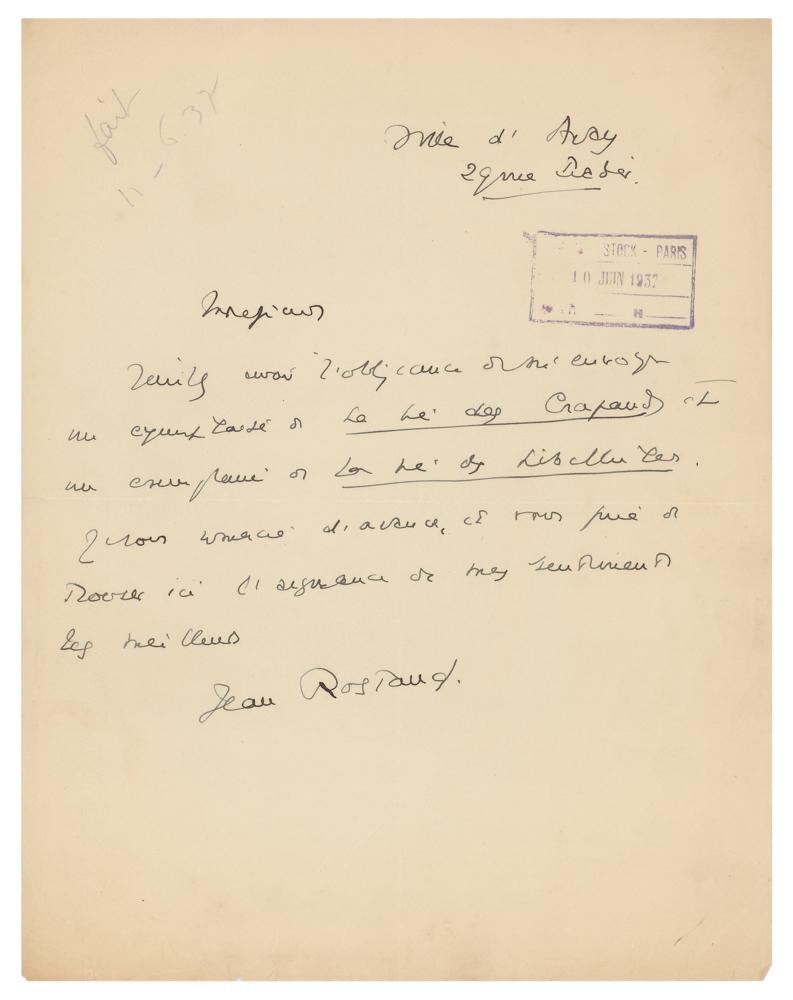 fait
11 - 6.37
Ville d'Avray
29 rue Pradier.
STOCK - PARIS
10 JUIN 1937
Messieurs
Veuillez avoir l'obligeance de m'envoyer
un exemplaire de La Vie des Crapauds et
un exemplaire de La Vie des Libellules.
Je vous remercie d'avance, et vous prie de
trouver ici l'assurance de mes sentiments
les meilleurs
Jean Rostand.